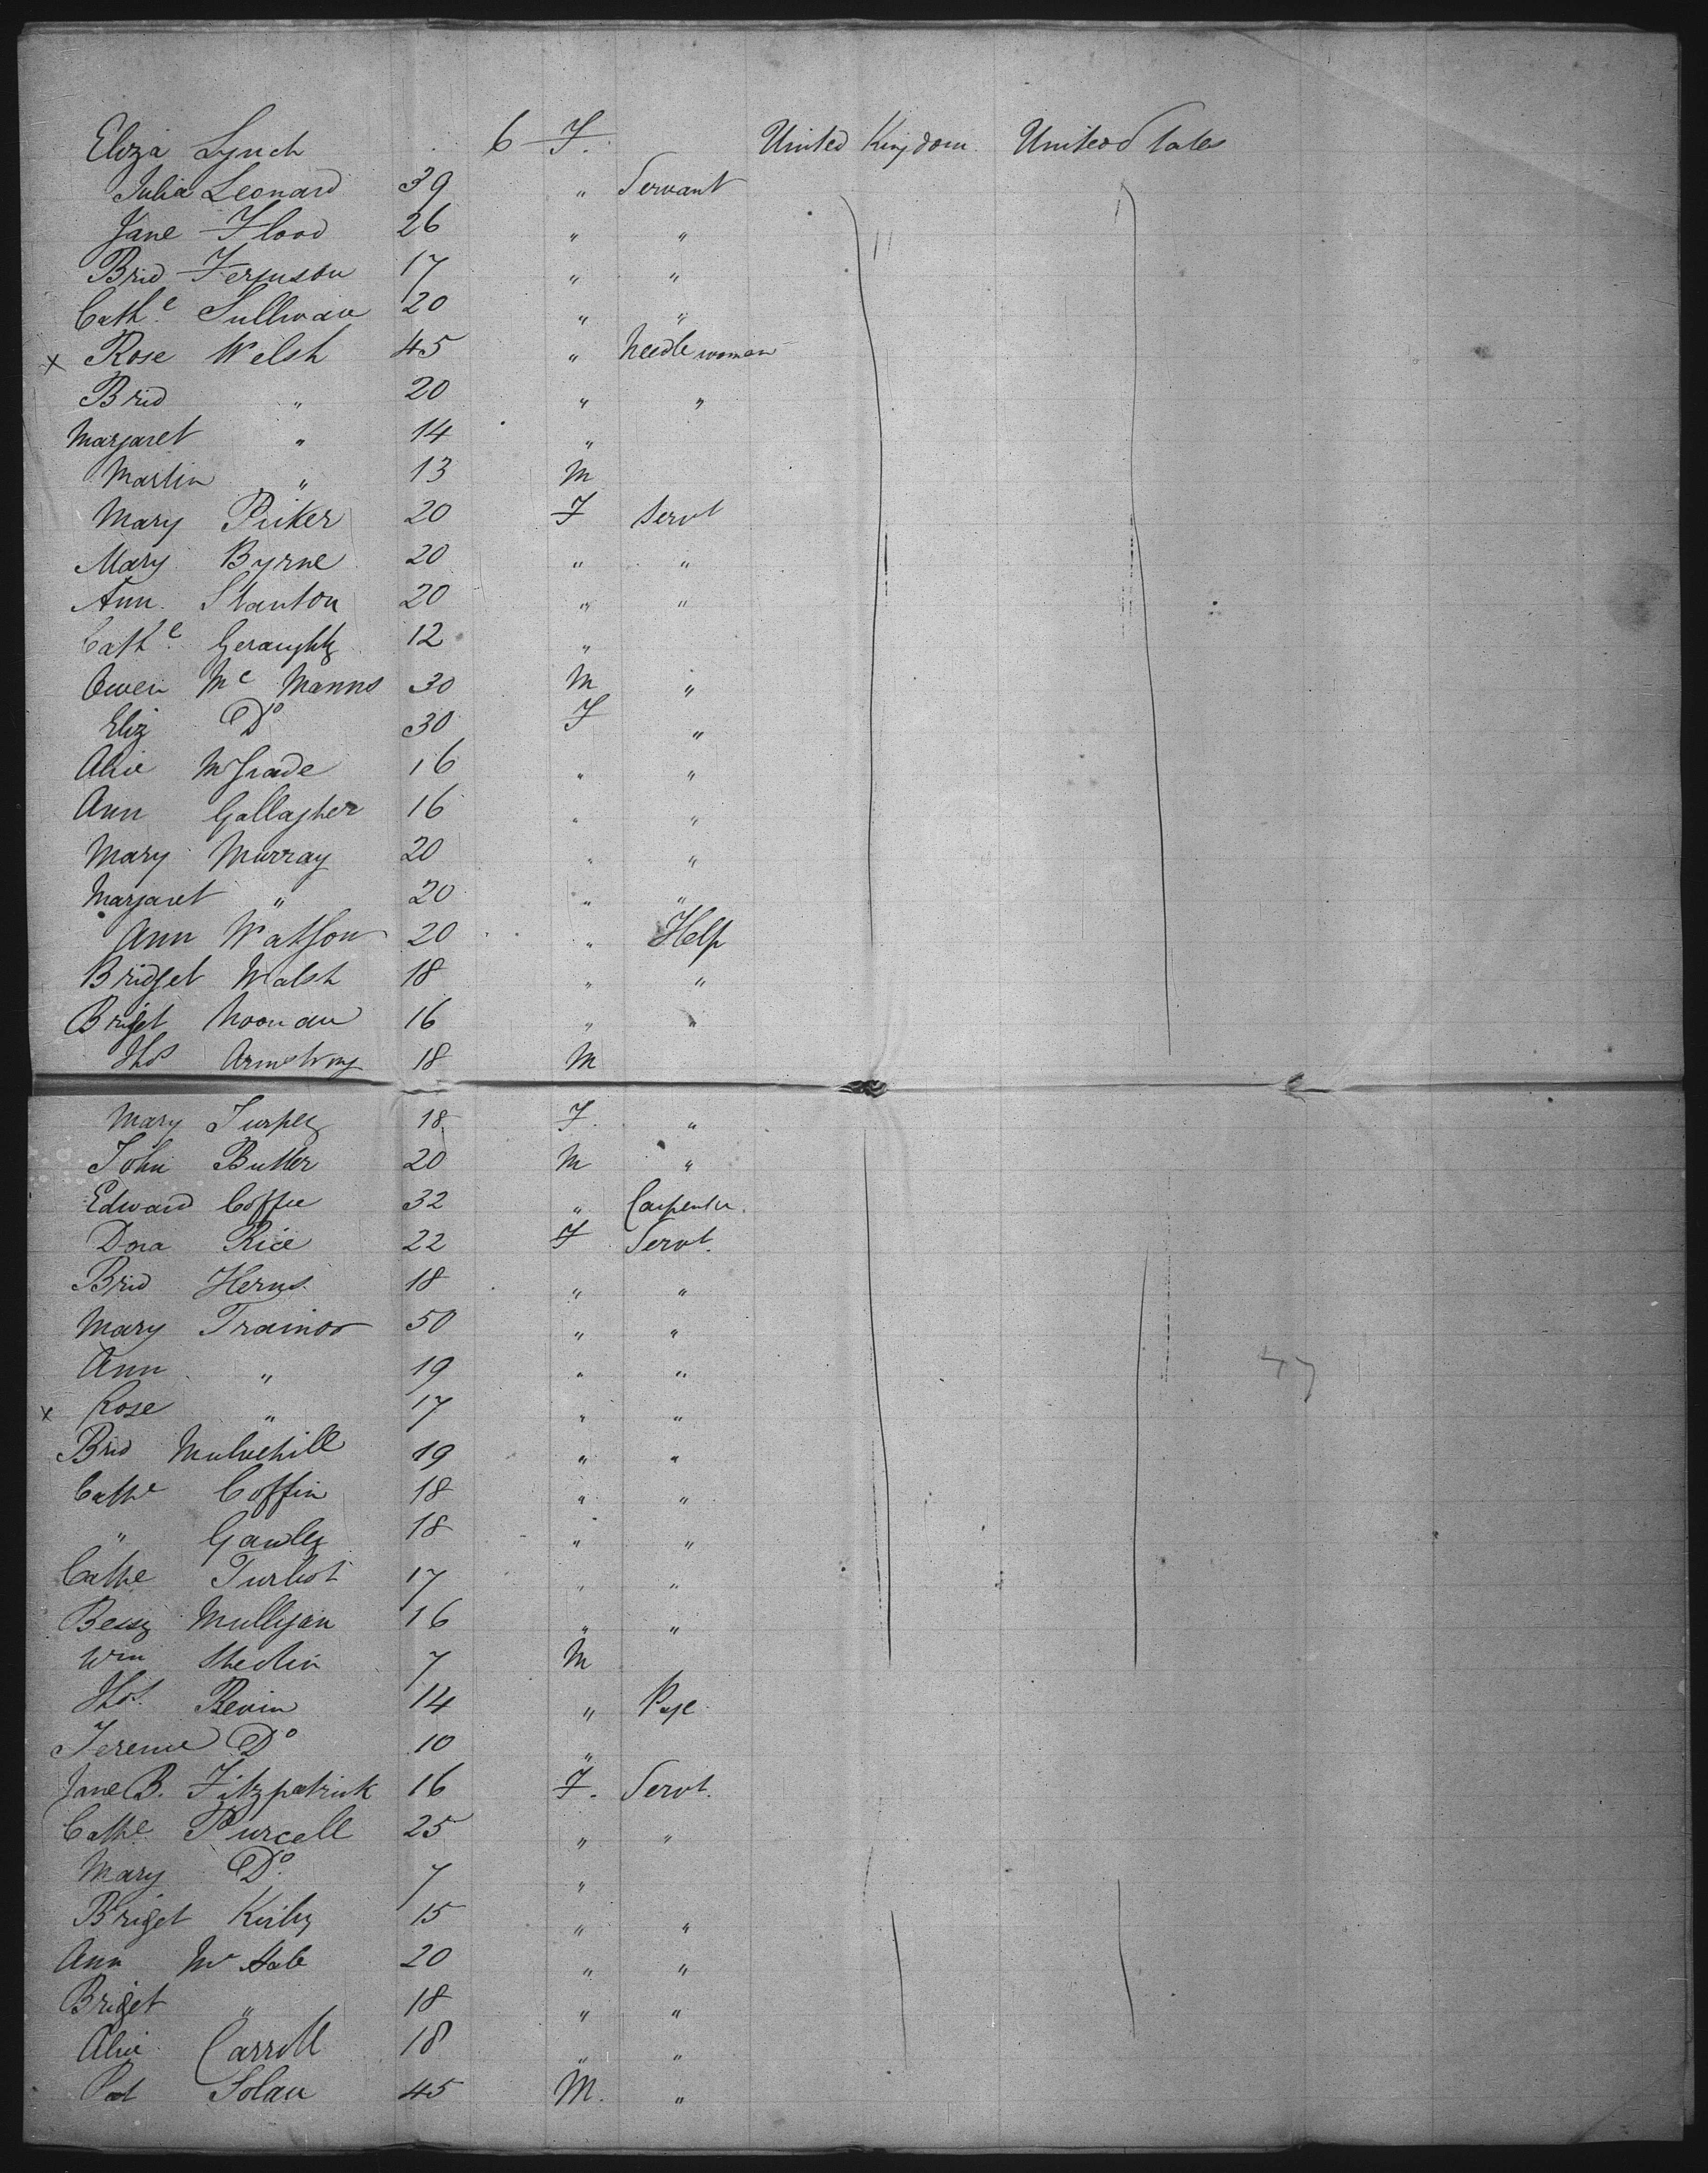 Eliza Lynch 6 F. United Kingdom United States
Julia Leonard 39 " Servant
Jane Flood 26 " "
Brid Ferguson 17 " "
Cathe Sullivan 20 " "
x Rose Welsh 45 " Needle woman
Brid " 20 " "
Margaret " 14 "
Martin " 13 M
Mary Picker 20 F Servt
Mary Byrne 20 " "
Ann Stanton 20 " "
Cathe Geraughty 12 "
Owen Mc Manns 30 M "
Eliz Do 30 F "
Alice McGrade 16 " "
Ann Gallagher 16 " "
Mary Murray 20 " "
Margaret " 20 " "
Ann Watson 20 " Help
Bridget Walsh 18 " "
Briget Noonan 16 " "
Thos Armstrong 18 M
Mary Turpey 18 F. "
John Butler 20 M "
Edward Coffee 32 " Carpenter.
Dora Rice 22 F Servt.
Brid Herns 18 " "
Mary Trainor 50 " "
Ann " 19 " "
x Rose " 17 " "
Brid Mulvehill 19 " "
Cathe Coffin 18 " "
" Gawley 18 " "
Cathe Turbot 17 " "
Bessy Mulligan 16 " "
Wm 7 M
Thos. Bevin 14 " Page
Terence Do 10 "
Jane B. Fitzpatrick 16 F. Servt.
Cathe Purcell 25 " "
Mary Do. 7 "
Briget Kirby 15 " "
Ann Mc Hale 20 " "
Briget " 18 " "
Alice Carroll 18 " "
Pat Solan 45 M. "